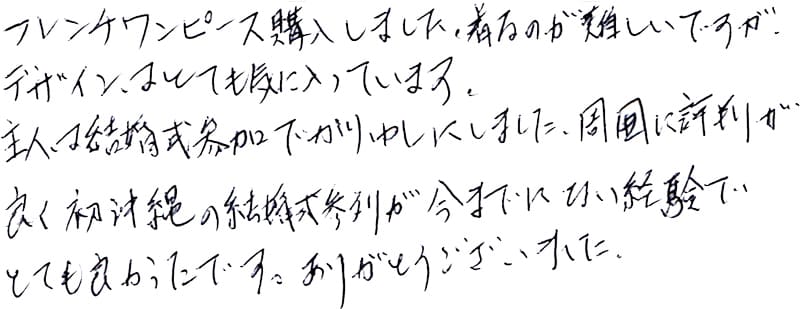 フレンチワンピース購入しました。着るのが難しいですが、
デザインはとても気に入っています。
主人は結婚式参加でかりゆしにしました、周囲に評判が
良く初沖縄の結婚式参列が今までにない経験で
とても良かったです。ありがとうございました。